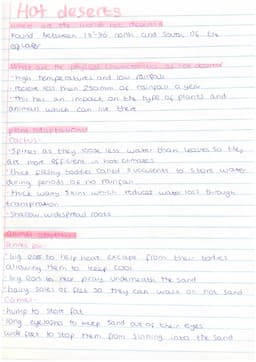 Hot deserts
where are the worlds hot deserts
found between 15-30° north and south of the
equator
What are the physical characteristics of hot deserts
- high temperatures and low rainfall
- recieve less than 250mm of rainfall a year
- This has an impact on the type of plants and
animals which can live there
plant adaptations
Cactus
- Spines as they loose less water than leaves so they
are more efficient in hot climates
- thick fleshy bodies called succulents to store water
during periods of no rainfall
- thick waxy skins which reduces water loss through
transpiration
- Shallow, widespread roots
animal adaptations
fennec fox-
- big ears to help heat escape from their bodies
allowing them to keep cool
- big ears to hear pray underneath the sand
- hairy soles of feet so they can walk on hot sand
Camel-
- hump to store fat
- long eyelashes to keep sand out of their eyes
wide feet to stop them from sinking into the sand